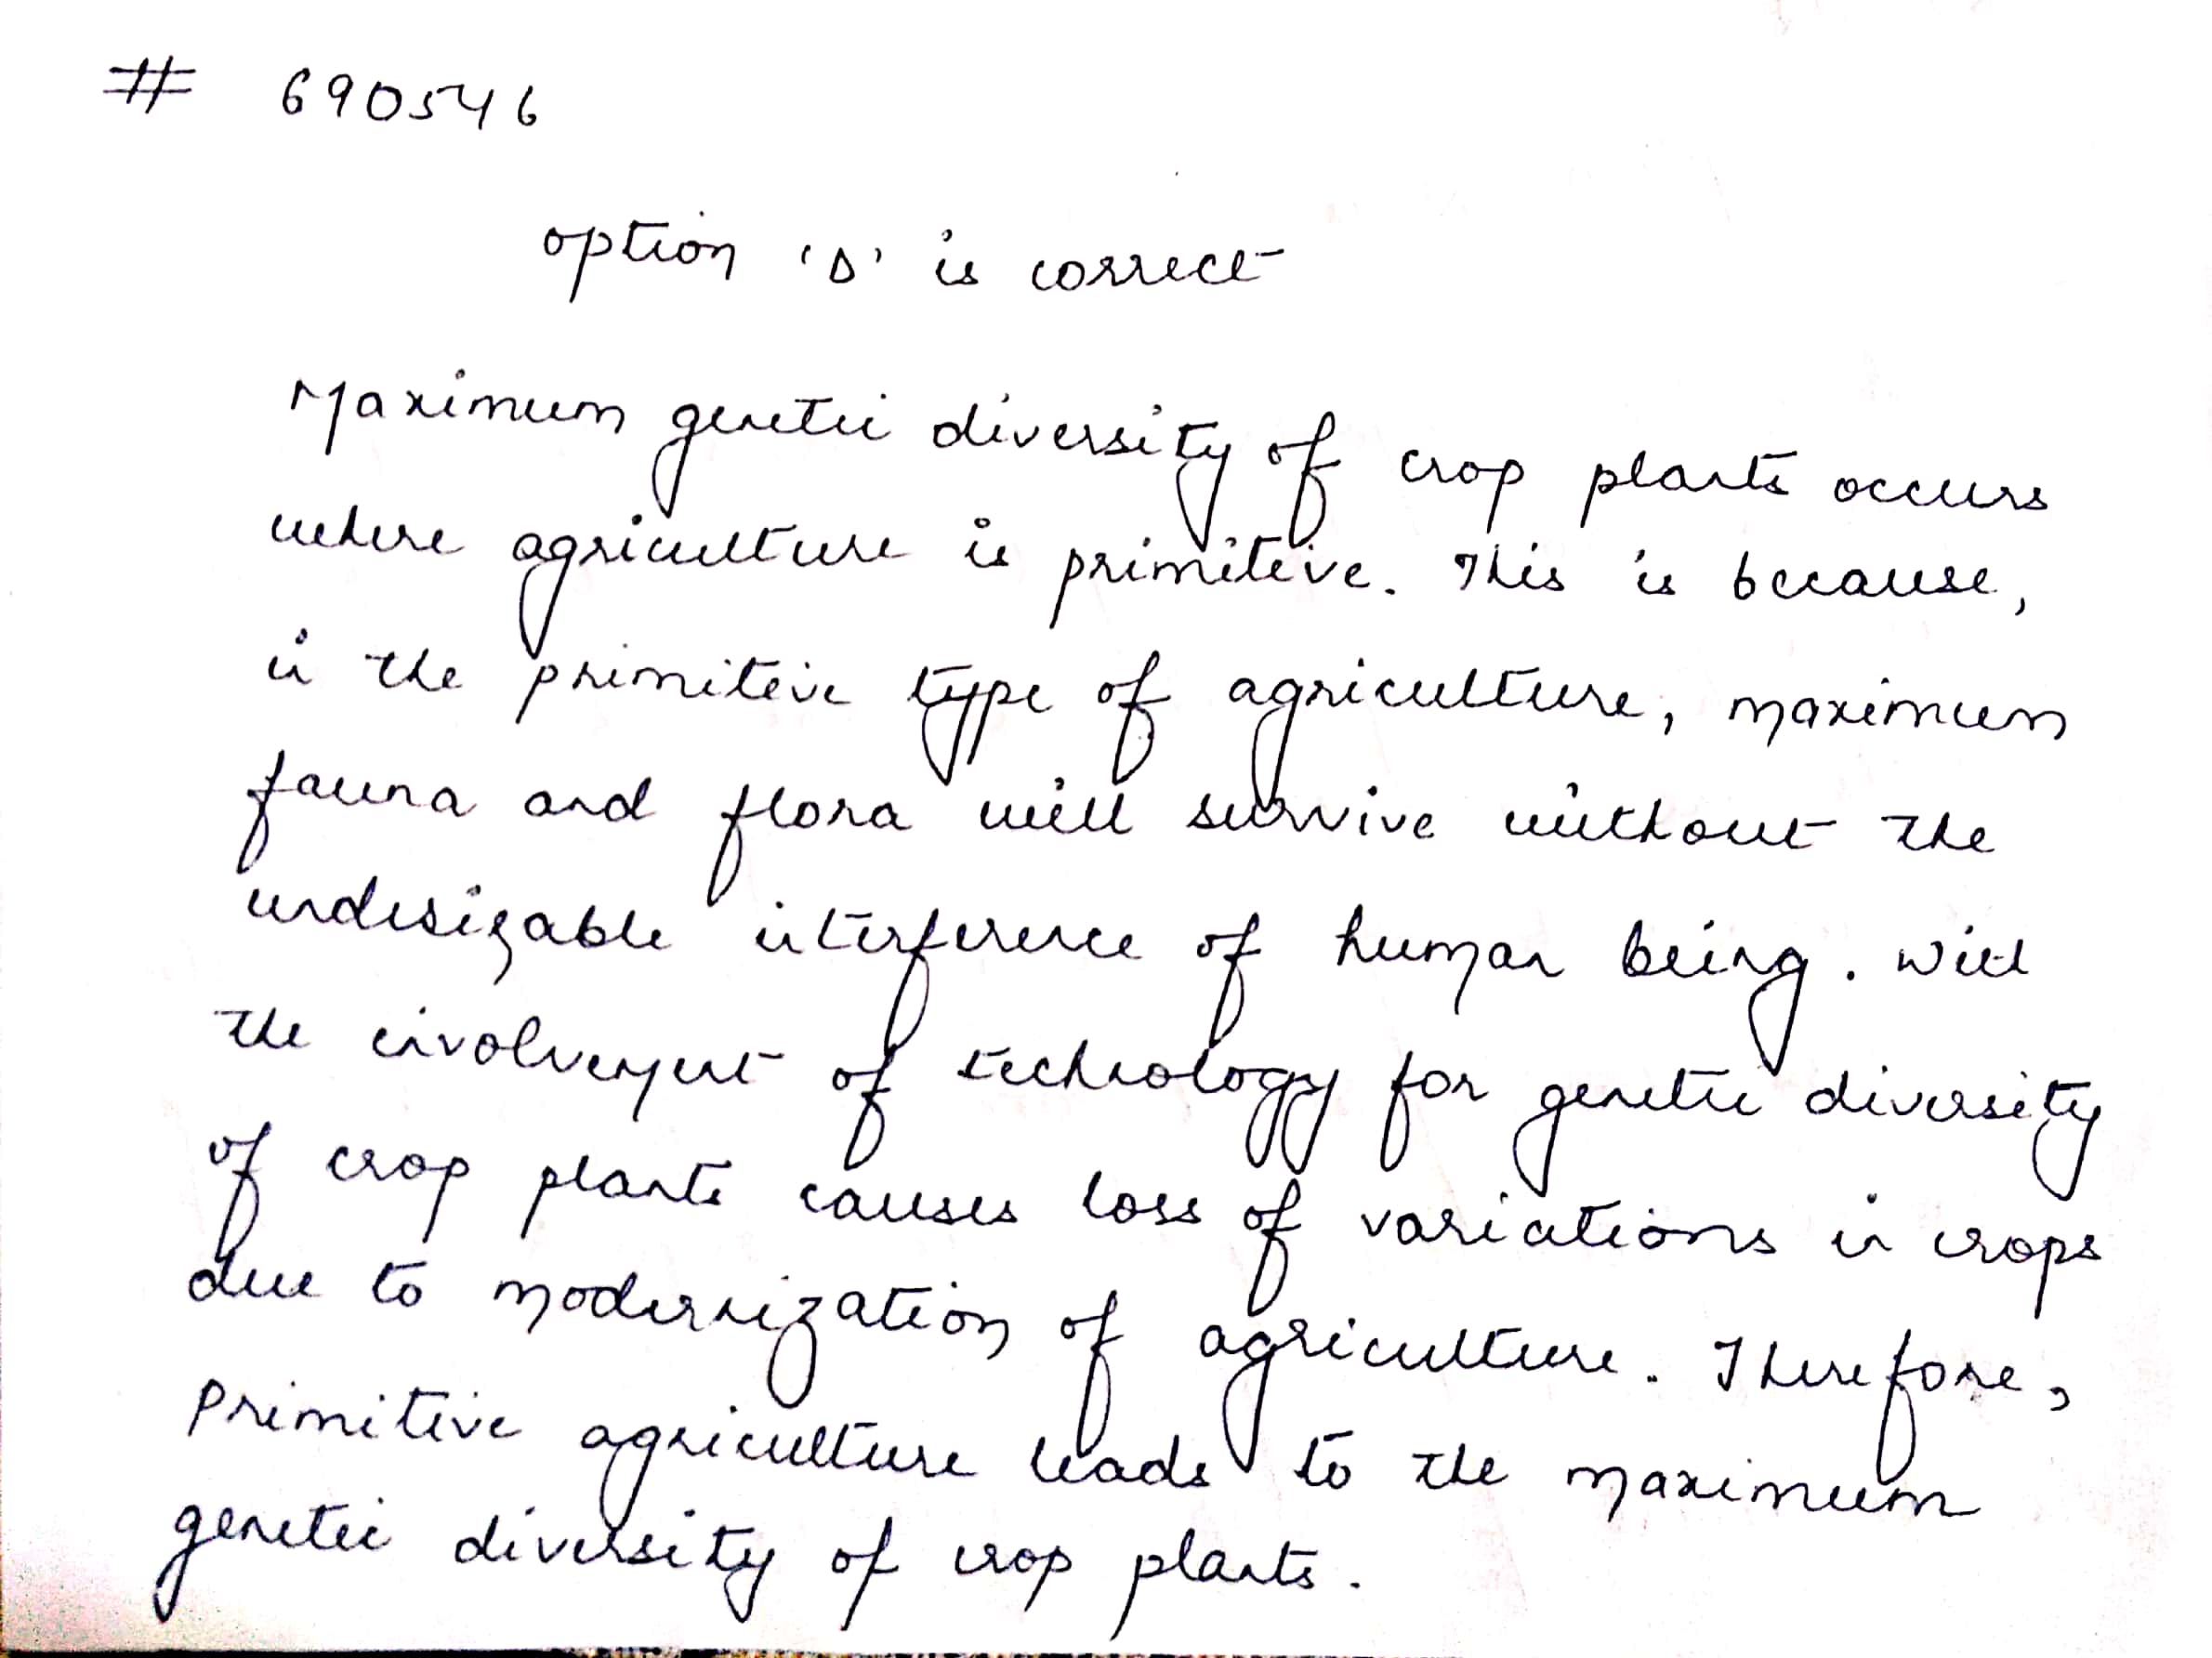 # 690546
option 'D' is correct
Maximum genetic diversity of crop plants occurs
where agriculture is primitive. This is because,
in the primitive type of agriculture, maximum
fauna and flora will survive without the
undesizable interference of human being. With
the involvement of technology for genetic diversity
of crop plants causes loss of variations in crops
due to modernization of agriculture. Therefore,
primitive agriculture leads to the maximum
genetic diversity of crop plants.